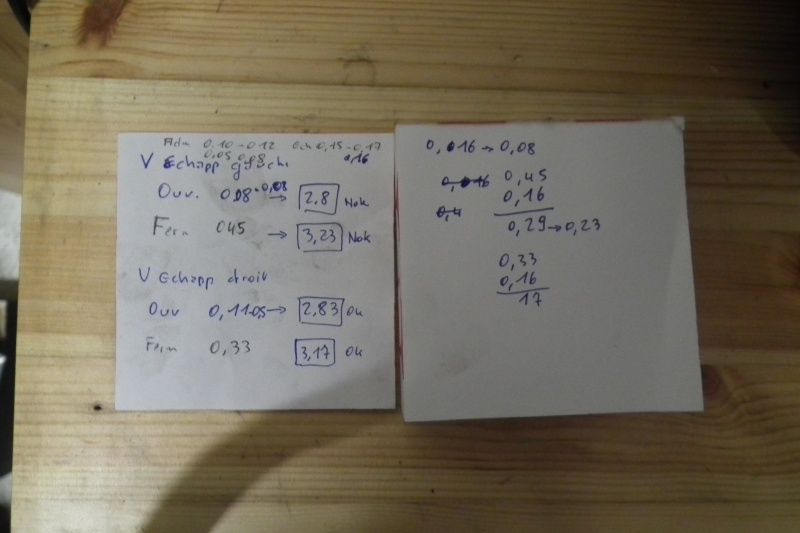 Adm 0,10-0,12 Ech 0,15-0,17
0,05 0,08 0,16
V Echapp gauche
Ouv. 0,08 → 2,8 Nok
Ferm 0,45 → 3,23 Nok
V Echapp droit
Ouv 0,11 → 2,83 Ok
Ferm 0,33 3,17 Ok
0,16 → 0,08
0,016 0,45
0,16
0,4
0,29 → 0,23
0,33
0,16
17